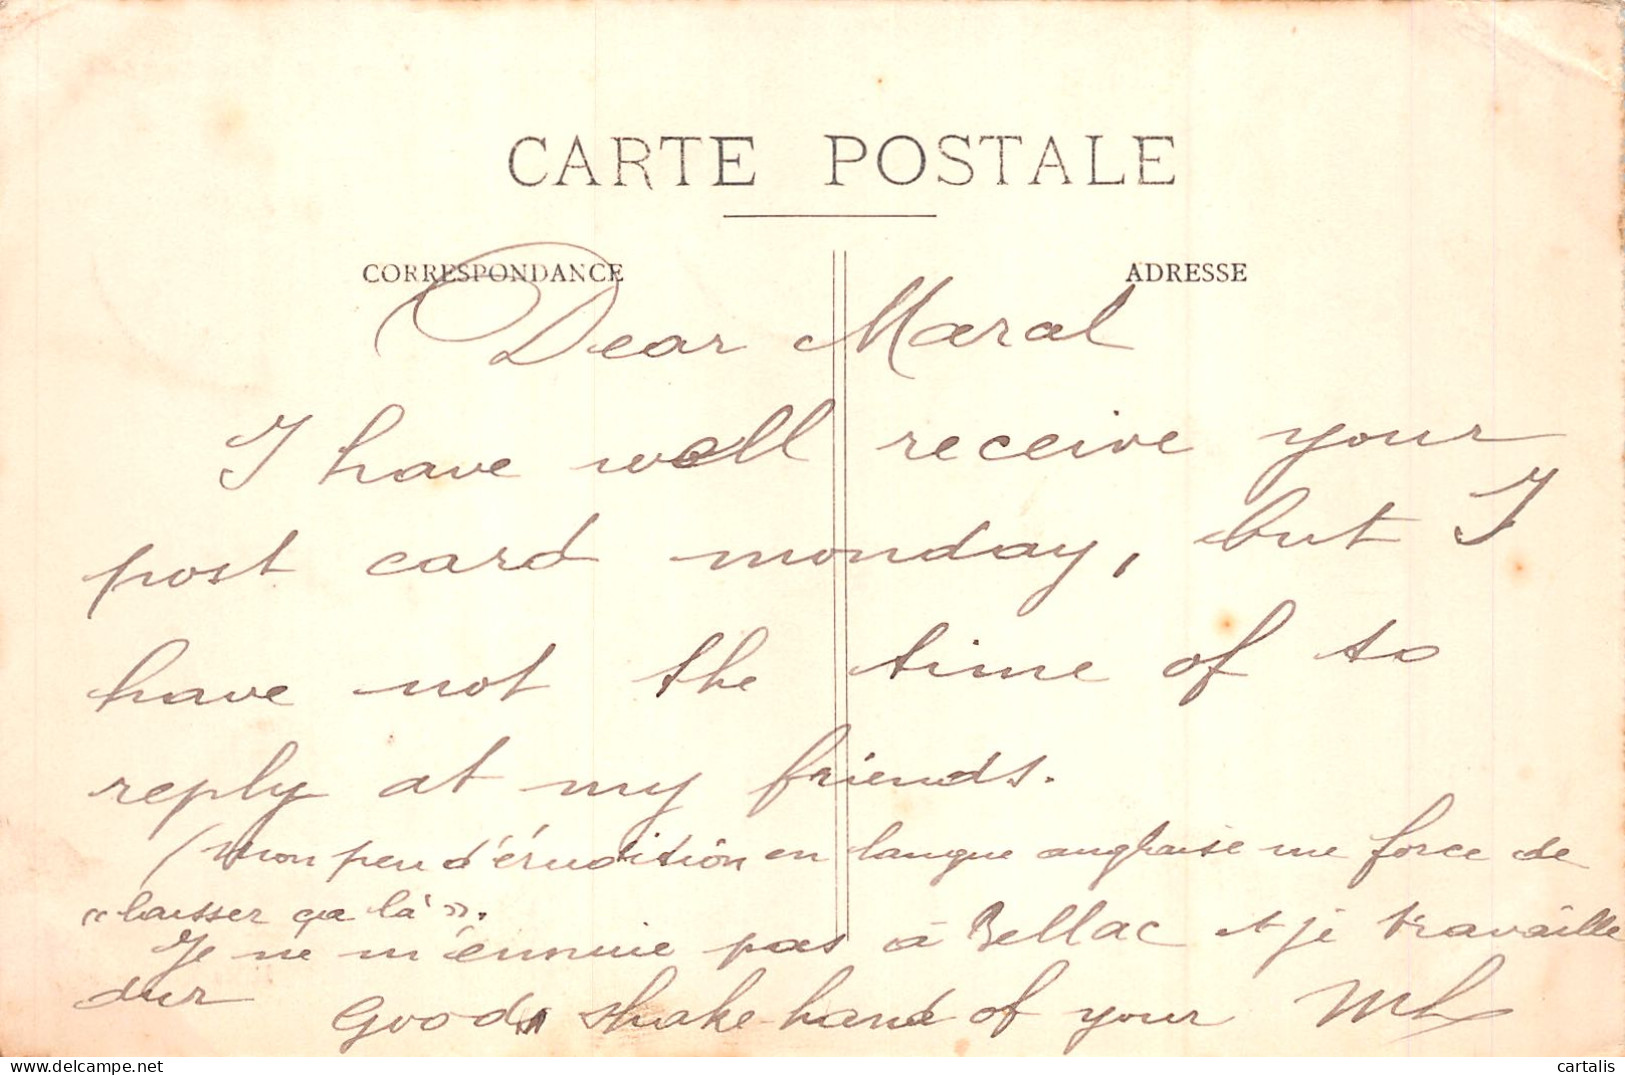 CARTE POSTALE
CORRESPONDANCE ADRESSE
Dear Maral
I have well receive your
post card monday, but I
have not the time of to
reply at my friends.
(mon peu d'érudition en langue anglaise me force de
"laisser ça là".
Je ne m'ennuie pas à Bellac et je travaille
dur Good shake-hand of your
cartalis